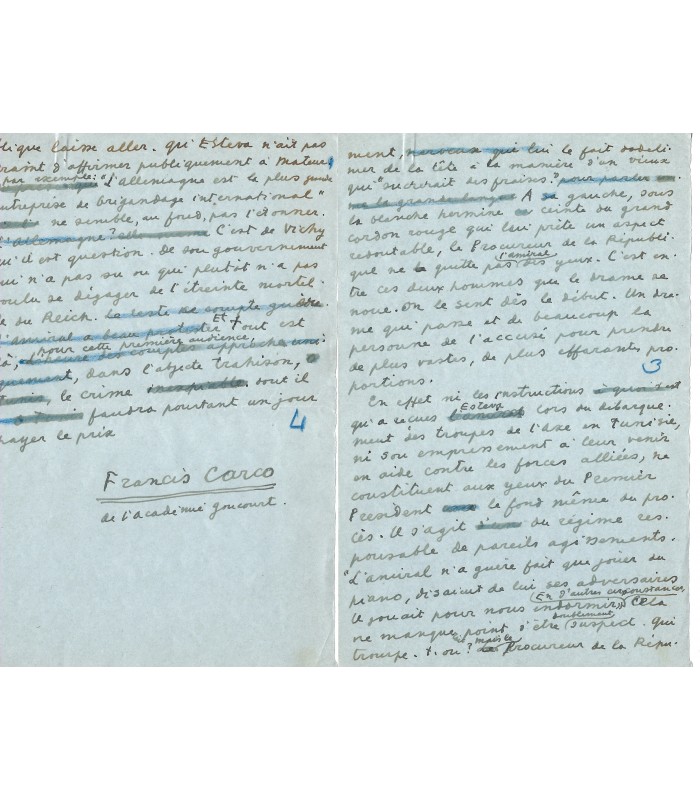 ment, nerveux qui lui le fait dodeli-
ner de la tête à la manière d'un vieux
qui "sucrerait des fraises" pour parler
A sa gauche, sous
la blanche hermine ceinte du grand
cordon rouge qui leur prête un aspect
redoutable, le Procureur de la Républi-
que ne quitte pas l'amiral des yeux. C'est en-
tre ces deux hommes que le drame se
noue. On le sent dès le début. Un dra-
me qui passe et de beaucoup la
personne de l'accusé pour prendre
de plus vastes, de plus effarantes pro-
portions.
3
En effet ni les instructions
qu'a reçues Esteva lors du débarque-
ment des troupes de l'axe en Tunisie,
ni son empressement à leur venir
en aide contre les forces alliées, ne
constituent aux yeux du Premier
Président le fond même du pro-
cès. Il s'agit du régime res-
ponsable de pareils agissements.
"L'amiral n'a guère fait que jouer du
piano, disaient de lui ses adversaires
Il jouait pour nous endormir" En d'autres circonstances, Cela
ne manque point d'être doublement suspect. qui
trompe-t-on? Procureur de la Répu-
blique laisse aller. qu'Esteva n'ait pas
craint d'affirmer publiquement à Mateur,
par exemple: "L'allemagne est la plus grande
entreprise de brigandage international"
ne semble, au fond, pas l'étonner.
l'allemagne? C'est de Vichy
qu'il est question. De son gouvernement
qui n'a pas su ou qui plutôt n'a pas
voulu se dégager de l'étreinte mortel-
le du Reich. Le reste ne compte guère.
l'amiral a beau protester Et tout est
là, pour cette première audience,
l'heure des comptes approche
uniquement, dans l'abjecte trahison,
le crime inexpiable dont il
faudra pourtant un jour
payer le prix
4
Francis Carco
de l'académie goncourt.